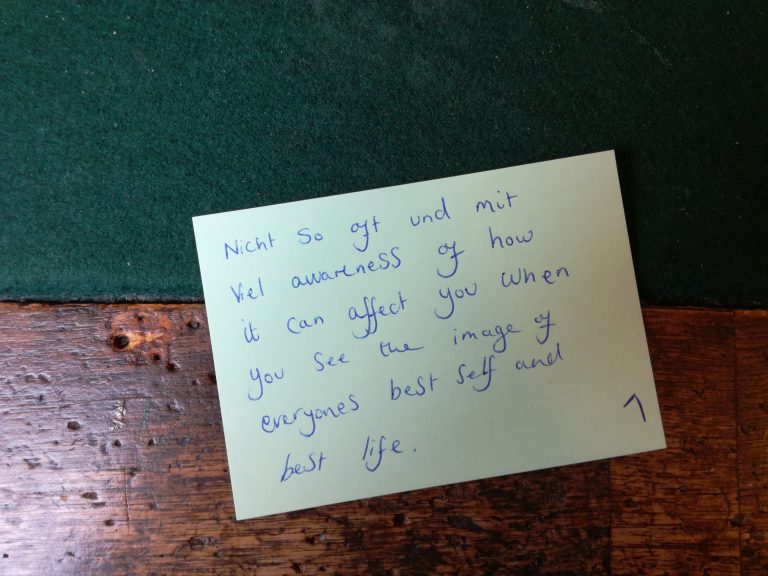 Nicht so oft und mit
viel awareness of how
it can affect you when
you see the image of
everyones best self and
best life.
1